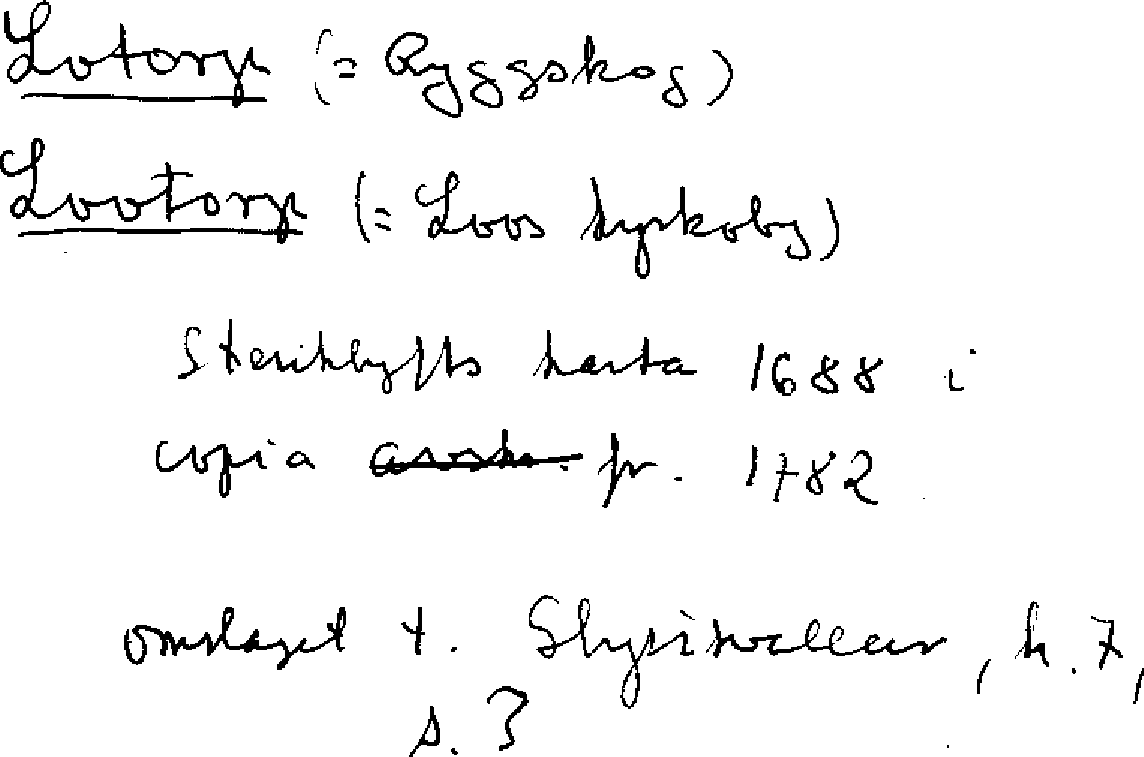 Lotorp (= Ryggskog)
Lootorp (= Loos kyrkoby)
Stenklyfts karta 1688 i
copia fr. 1782
omslaget t. Skyttwallar, h. 7,
s. 3